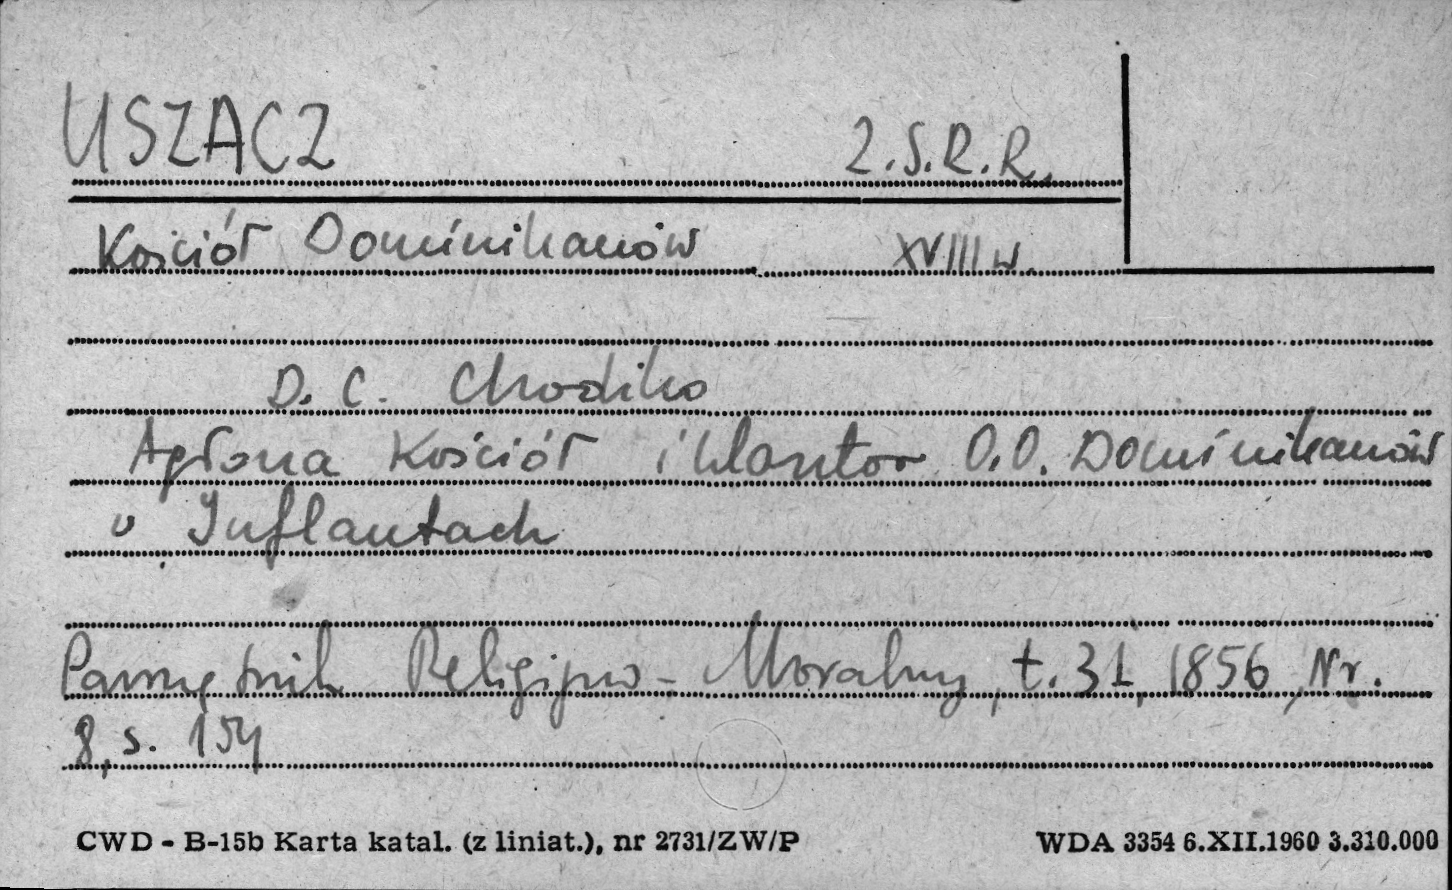 USZACZ Z.S.R.R.
Kościół Dominikanów XVIII w.
D. C. Chodźko
Agłona Kościół i klasztor O.O. Dominikanów
w Inflantach
Pamiętnik Religijno-Moralny, t. 31, 1856, Nr.
8, s. 154
CWD - B-15b Karta katal. (z liniat.), nr 2731/ZW/P WDA 3354 6.XII.1960 3.310.000